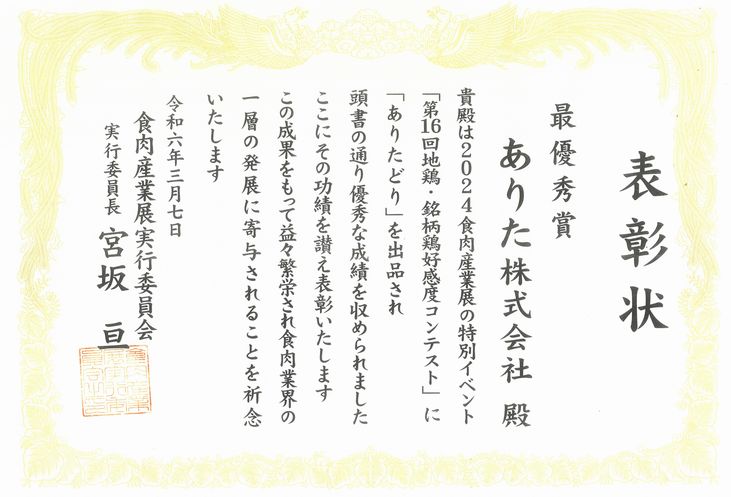 表彰状
最優秀賞
ありた株式会社 殿
貴殿は2024食肉産業展の特別イベント
「第16回地鶏・銘柄鶏好感度コンテスト」に
「ありたどり」を出品され
頭書の通り優秀な成績を収められました
ここにその功績を讃え表彰いたします
この成果をもって益々繁栄され食肉業界の
一層の発展に寄与されることを祈念
いたします
令和六年三月七日
食肉産業展実行委員会
実行委員長 宮坂 亘